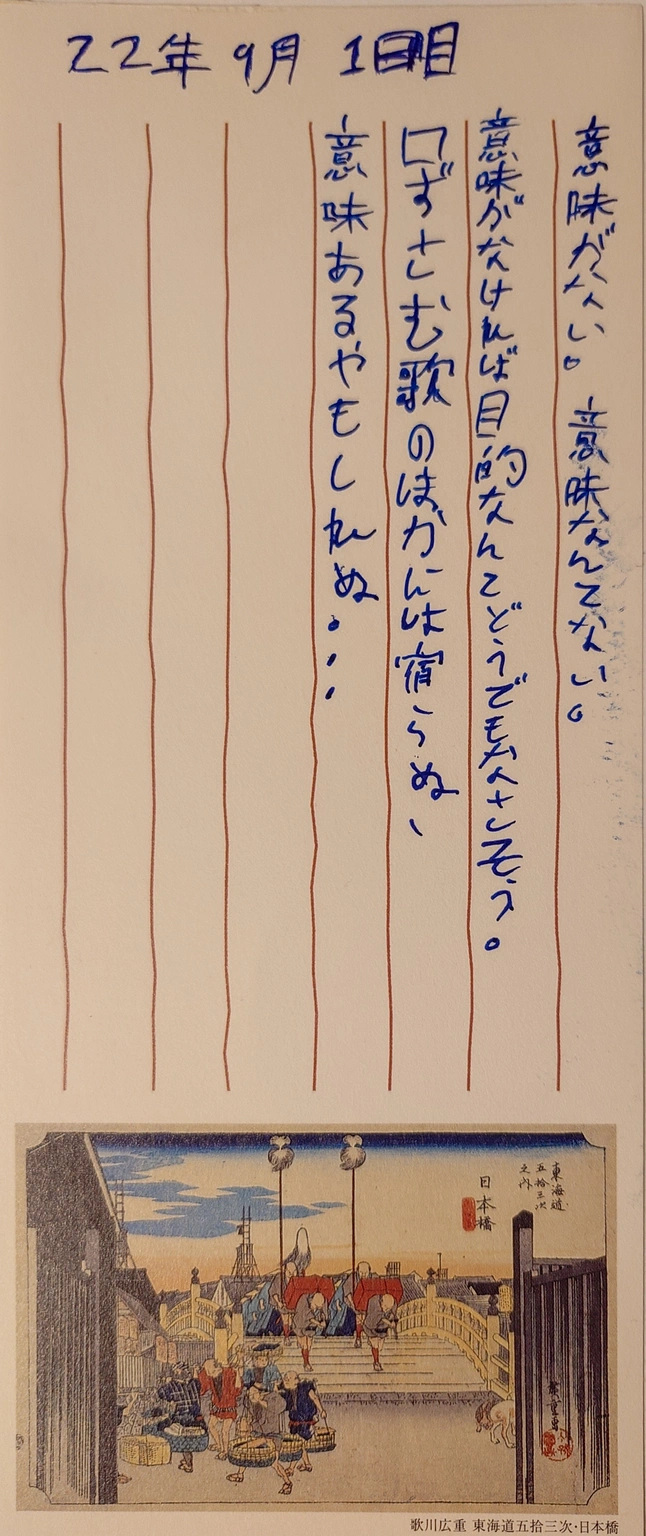 22年 9月 1日目
意味がない。意味なんてない。
意味がなければ目的なんてどうでもなさそう。
口ずさむ歌のほかには宿らぬ、
意味あるやもしれぬ・・・
東海道
五拾三次
之内
日本橋
廣重画
歌川広重 東海道五拾三次・日本橋